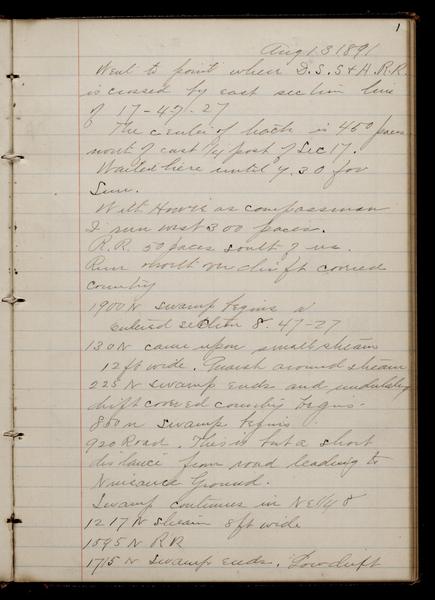 1
Aug 13 1891
Went to point where D.S.S & A.R.R.
is crossed by east section line
of 17-47-27
The center of track is 450 paces
north of east 1/4 post of Sec 17.
Waited here until 9.30 for
Sun.
With Howie as compassman
I run west 300 paces.
R.R. 50 paces south of us.
Run north over drift covered
country
1900 N swamp begins
Entered section 8. 47-27
130 N came upon small stream
12 ft wide. Marsh around stream
225 N swamp ends and undulating
drift covered country begins.
850 N swamp begins
920 Road. This is but a short
distance from road leading to
Nuisance Ground.
Swamp continues in NE 1/4 8
1217 N stream 8 ft wide
1595 N RR
1715 N swamp ends. Low drift